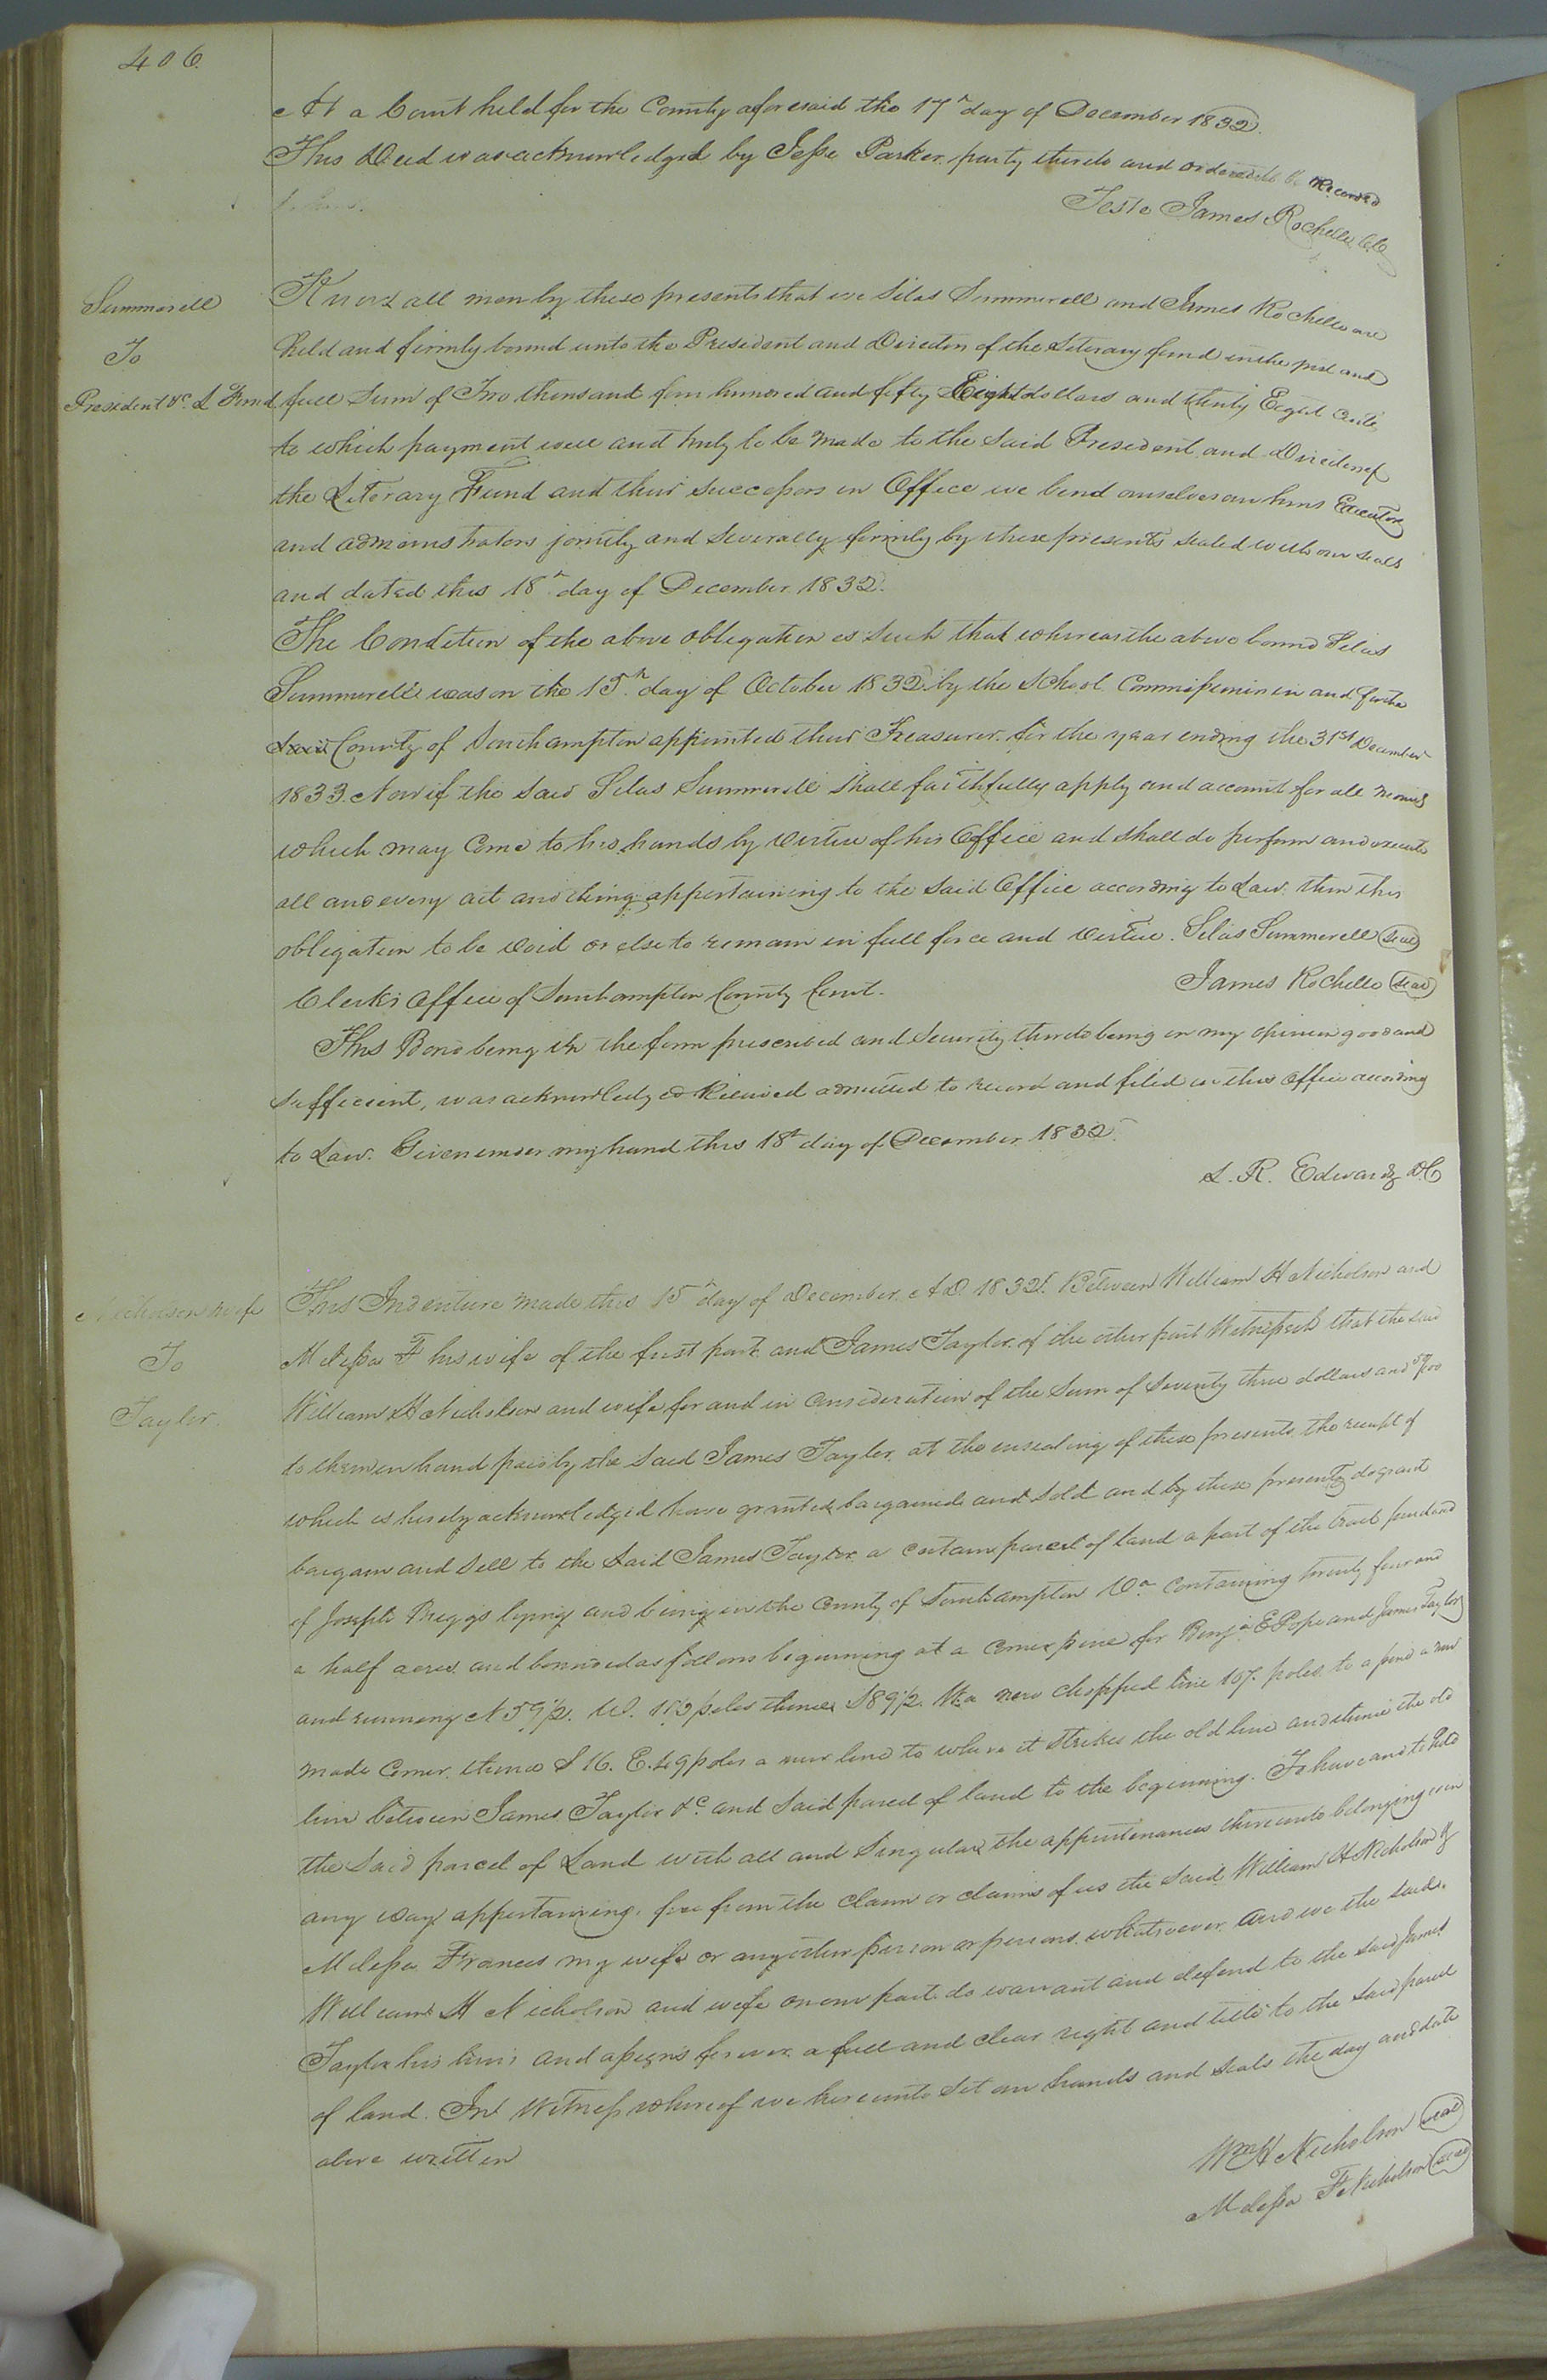 406.
At a Court held for the County aforesaid the 17th day of December 1832.
This Deed was acknowledged by Jesse Parker party thereto and ordered to be Recorded
Teste James Rochelle CC
Summerell
To
President &c L Fund
Know all men by these presents that we Silas Summerell and James Rochelle are
held and firmly bound unto the President and Director of the Literary fund in the just and
full Sum of Two thousand four hundred and fifty Eight dollars and thirty Eight cents
to which payment well and truly to be made to the said President and Directors of
the Literary Fund and their successors in Office we bend ourselves our heirs Executors
and administrators jointly and severally firmly by these presents sealed with our seals
and dated this 18th day of December 1832.
The Condition of the above obligation is such that whereas the above bound Silas
Summerell was on the 15th day of October 1832 by the School Commissioners in and for the
County of Southampton appointed their Treasurer for the year ending the 31st December
1833. Now if the said Silas Summerell shall faithfully apply and account for all monies
which may come to his hands by virtue of his Office and shall do perform and execute
all and every act and thing appertaining to the said Office according to Law. then this
obligation to be void or else to remain in full force and virtue. Silas Summerell seal
Clerk's Office of Southampton County Court. James Rochelle seal
This Bond being in the form prescribed and Security thereto being in my opinion good and
sufficient, was acknowledged Received admitted to record and filed in this Office according
to Law. Given under my hand this 18th day of December 1832.
L. R. Edwards DC
Nicholson & wife
To
Taylor.
This Indenture made this 15th day of December A D 1832. Between William H Nicholson and
Melissa F his wife of the first part and James Taylor of the other part Witnesseth that the said
William H Nicholson and wife for and in consideration of the Sum of Seventy three dollars and 50/100
to them in hand paid by the said James Taylor at the ensealing of these presents the receipt of
which is hereby acknowledged have granted bargained and sold and by these presents do grant
bargain and sell to the said James Taylor a certain parcel of land a part of the tract purchased
of Joseph Briggs lying and being in the County of Southampton Va containing twenty four and
a half acres and bounded as follows beginning at a corner pine for Benja E Pope and James Taylor
and running N 59 1/2. W. poles thence S 89 1/2. W. a new chopped line 107. poles to a pine a new
made corner. thence S 16. E. 49 poles a new line to where it strikes the old line and thence the old
line between James Taylor &c. and said parcel of land to the beginning. To have and to hold
the said parcel of Land with all and Singular the appurtenances thereunto belonging or in
any ways appertaining. free from the claim or claims of us the said William H Nicholson &
Melissa Frances my wife or any other person or persons whatsoever. and we the said.
William H Nicholson and wife on our part do warrant and defend to the said James
Taylor his heirs and assigns forever a full and clear right and title to the said parcel
of land. In Witness whereof we hereunto set our hands and seals the day and date
above written
Wm H Nicholson seal
Melissa F Nicholson seal